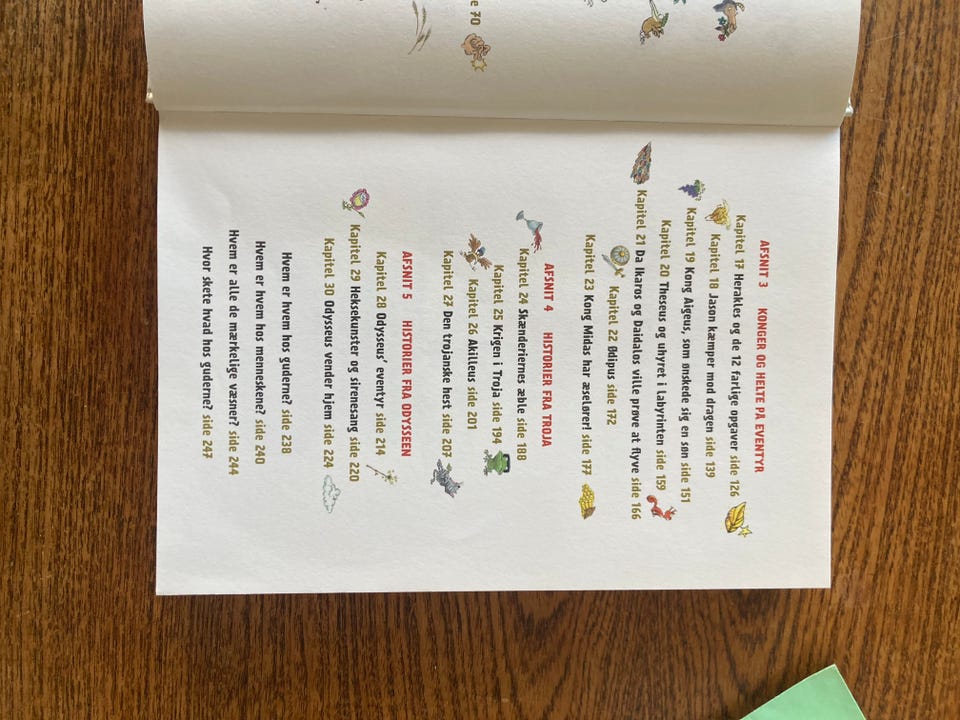 e 70
AFSNIT 3 KONGER OG HELTE PÅ EVENTYR
Kapitel 17 Herakles og de 12 farlige opgaver side 126
Kapitel 18 Jason kæmper mod dragen side 139
Kapitel 19 Kong Aigeus, som ønskede sig en søn side 151
Kapitel 20 Theseus og uhyret i Labyrinten side 159
Kapitel 21 Da Ikaros og Daidalos ville prøve at flyve side 166
Kapitel 22 Ødipus side 172
Kapitel 23 Kong Midas har æselører! side 177
AFSNIT 4 HISTORIER FRA TROJA
Kapitel 24 Skænderiernes æble side 188
Kapitel 25 Krigen i Troja side 194
Kapitel 26 Akilleus side 201
Kapitel 27 Den trojanske hest side 207
AFSNIT 5 HISTORIER FRA ODYSSEEN
Kapitel 28 Odysseus' eventyr side 214
Kapitel 29 Heksekunster og sirenesang side 220
Kapitel 30 Odysseus vender hjem side 224
Hvem er hvem hos guderne? side 238
Hvem er hvem hos menneskene? side 240
Hvem er alle de mærkelige væsner? side 244
Hvor skete hvad hos guderne? side 247